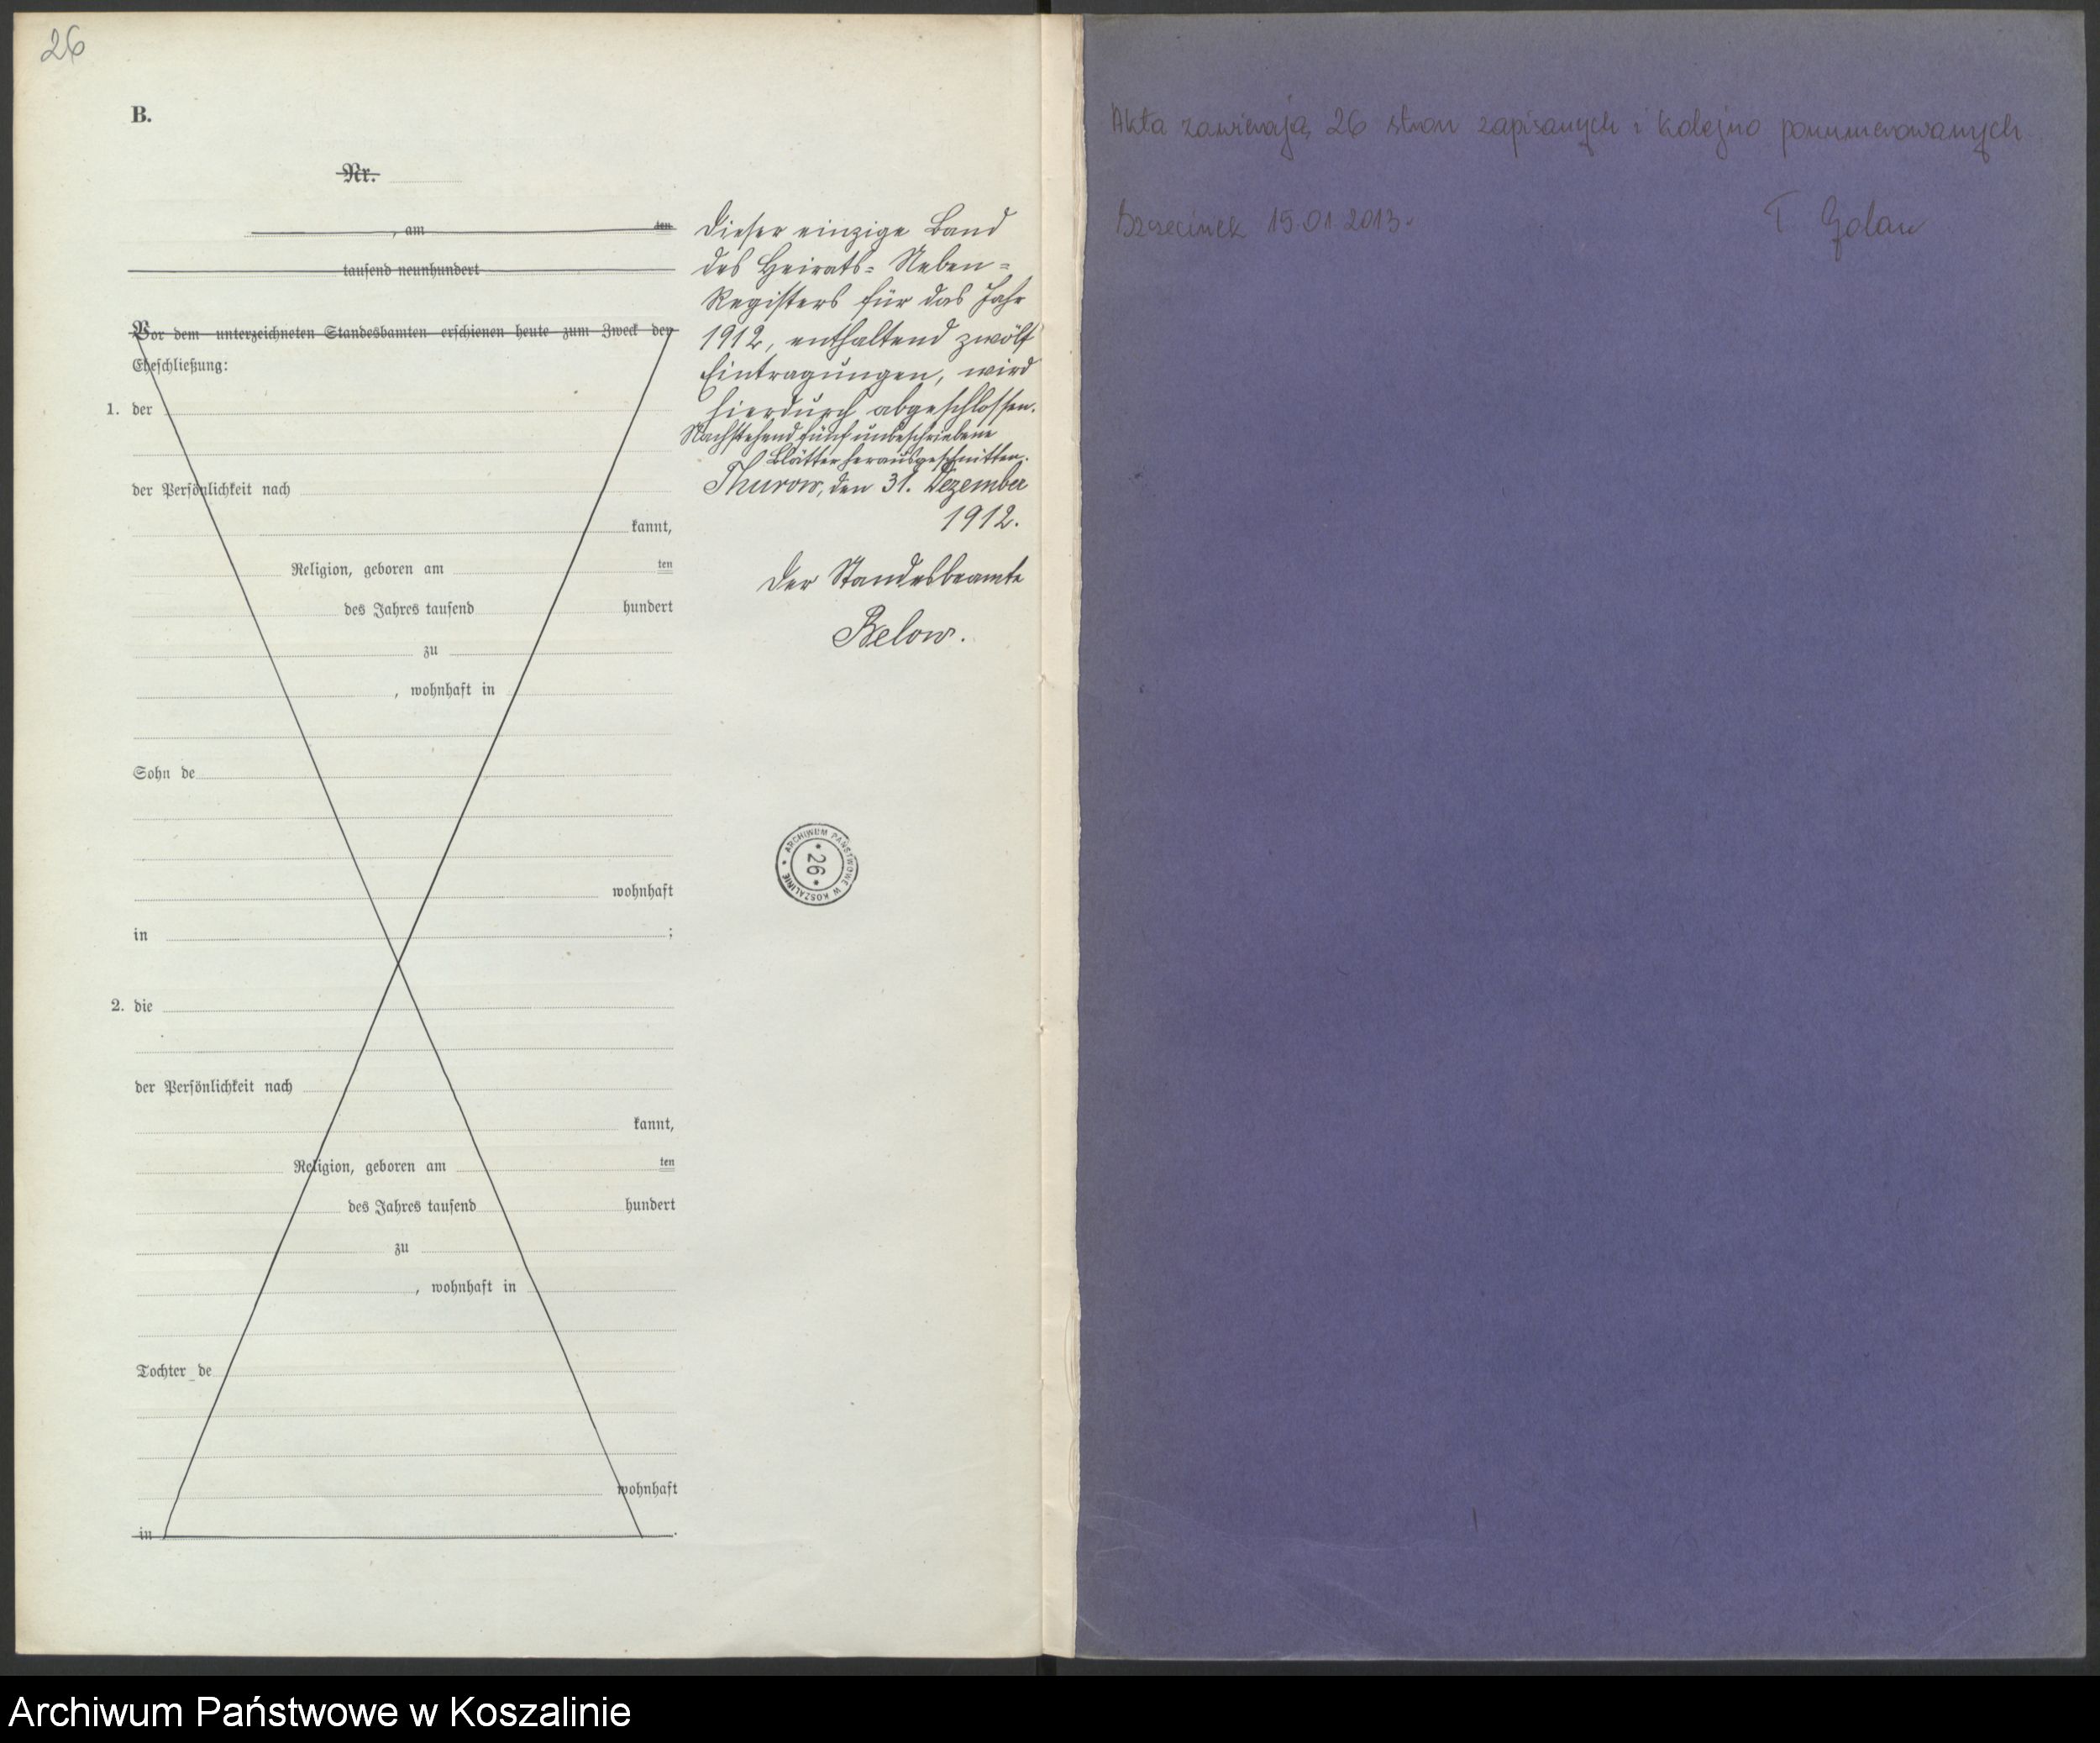 26
B.
Nr.
, am ten
tausend neunhundert
Vor dem unterzeichneten Standesbamten erschienen heute zum Zweck der
Eheschließung:
1. der
der Persönlichkeit nach
kannt,
Religion, geboren am ten
des Jahres tausend hundert
zu
, wohnhaft in
Sohn de
wohnhaft
in ;
2. die
der Persönlichkeit nach
kannt,
Religion, geboren am ten
des Jahres tausend hundert
zu
, wohnhaft in
Tochter de
wohnhaft
in .
Dieser einzige Band
des Heirats- Neben-
Registers für das Jahr
1912, enthaltend zwölf
Eintragungen, wird
hierdurch abgeschlossen.
Nachstehend fünf unbeschriebene
Blätter herausgeschnitten.
Thurow, den 31. Dezember
1912.
Der Standesbeamte
Below.
ARCHIWUM PAŃSTWOWE W KOSZALINIE
26
Akta zawierają 26 stron zapisanych i kolejno ponumerowanych
Szczecinek 15.01.2013.
T Golan
Archiwum Państwowe w Koszalinie